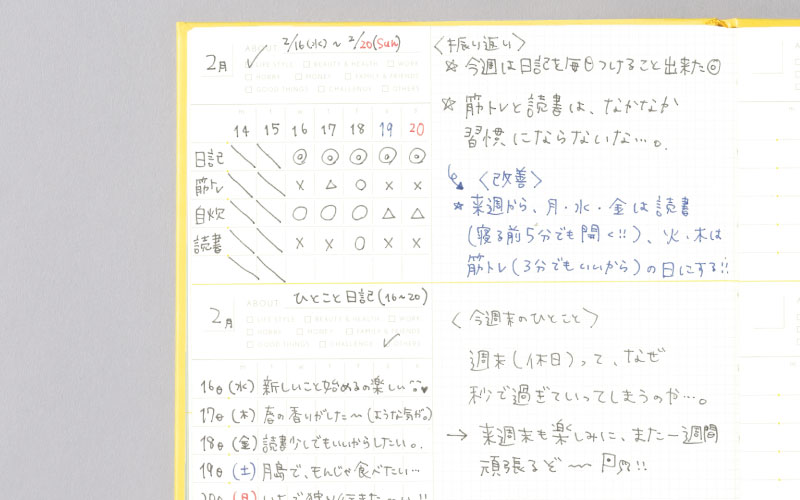 2月
ABOUT
2/16(水)〜2/20(Sun)
LIFE STYLE BEAUTY & HEALTH WORK
HOBBY MONEY FAMILY & FRIENDS
GOOD THINGS CHALLENGE OTHERS
14 15 16 17 18 19 20
日記 ◎ ◎ ◎ ◎ ◎
筋トレ × △ ○ × ×
自炊 ○ ○ ○ △ △
読書 × × ○ × ×
〈振り返り〉
☆今週は日記を毎日つけること出来た◎
☆筋トレと読書は、なかなか
習慣にならないな…。
〈改善〉
☆来週から、月・水・金は読書
(寝る前5分でも開く!!)、火・木は
筋トレ(3分でもいいから)の日にする!!
2月
ABOUT
ひとこと日記(16〜20)
LIFE STYLE BEAUTY & HEALTH WORK
HOBBY MONEY FAMILY & FRIENDS
GOOD THINGS CHALLENGE OTHERS
16日(水) 新しいこと始めるの楽しい
17日(木) 春の香りがした〜(ような気が。)
18日(金) 読書少しでもいいからしたい。
19日(土) 月島で、もんじゃ食べたい…
〈今週末のひとこと〉
週末(休日)って、なぜ
秒で過ぎていってしまうのか…。
→ 来週末も楽しみに、また一週間
頑張るぞ〜!!